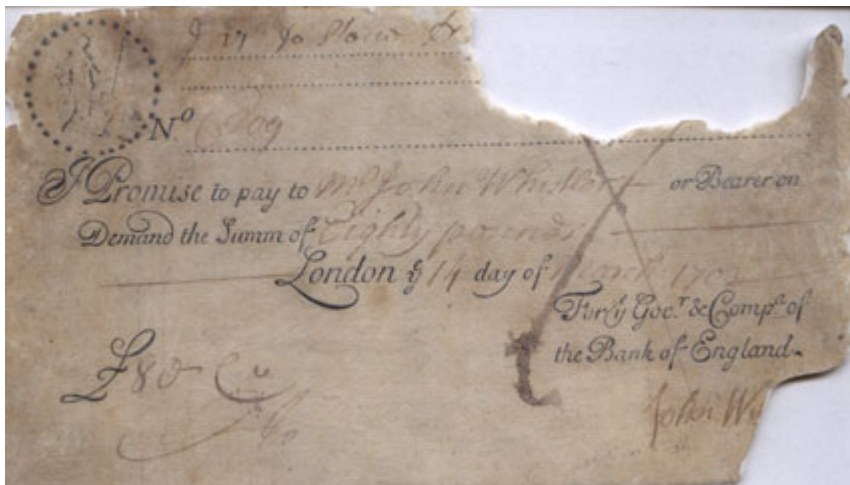 No
I Promise to pay to Mr John Whistler or Bearer on
Demand the Summ of Eighty pounds
London ye 14 day of March 170
For ye Govr. & Compa. of
the Bank of England.
£80
John W